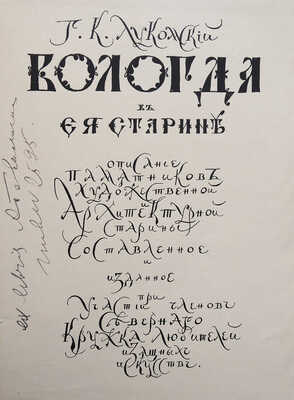 Г. К. Лукомскій
ВОЛОГДА
въ
ея старинѣ
описаніе
памятниковъ
художественной
и
архитектурной
старины
составленное
и
изданное
при
участіи членовъ
сѣвернаго
кружка любителей
изящныхъ
искусствъ.
ex libris